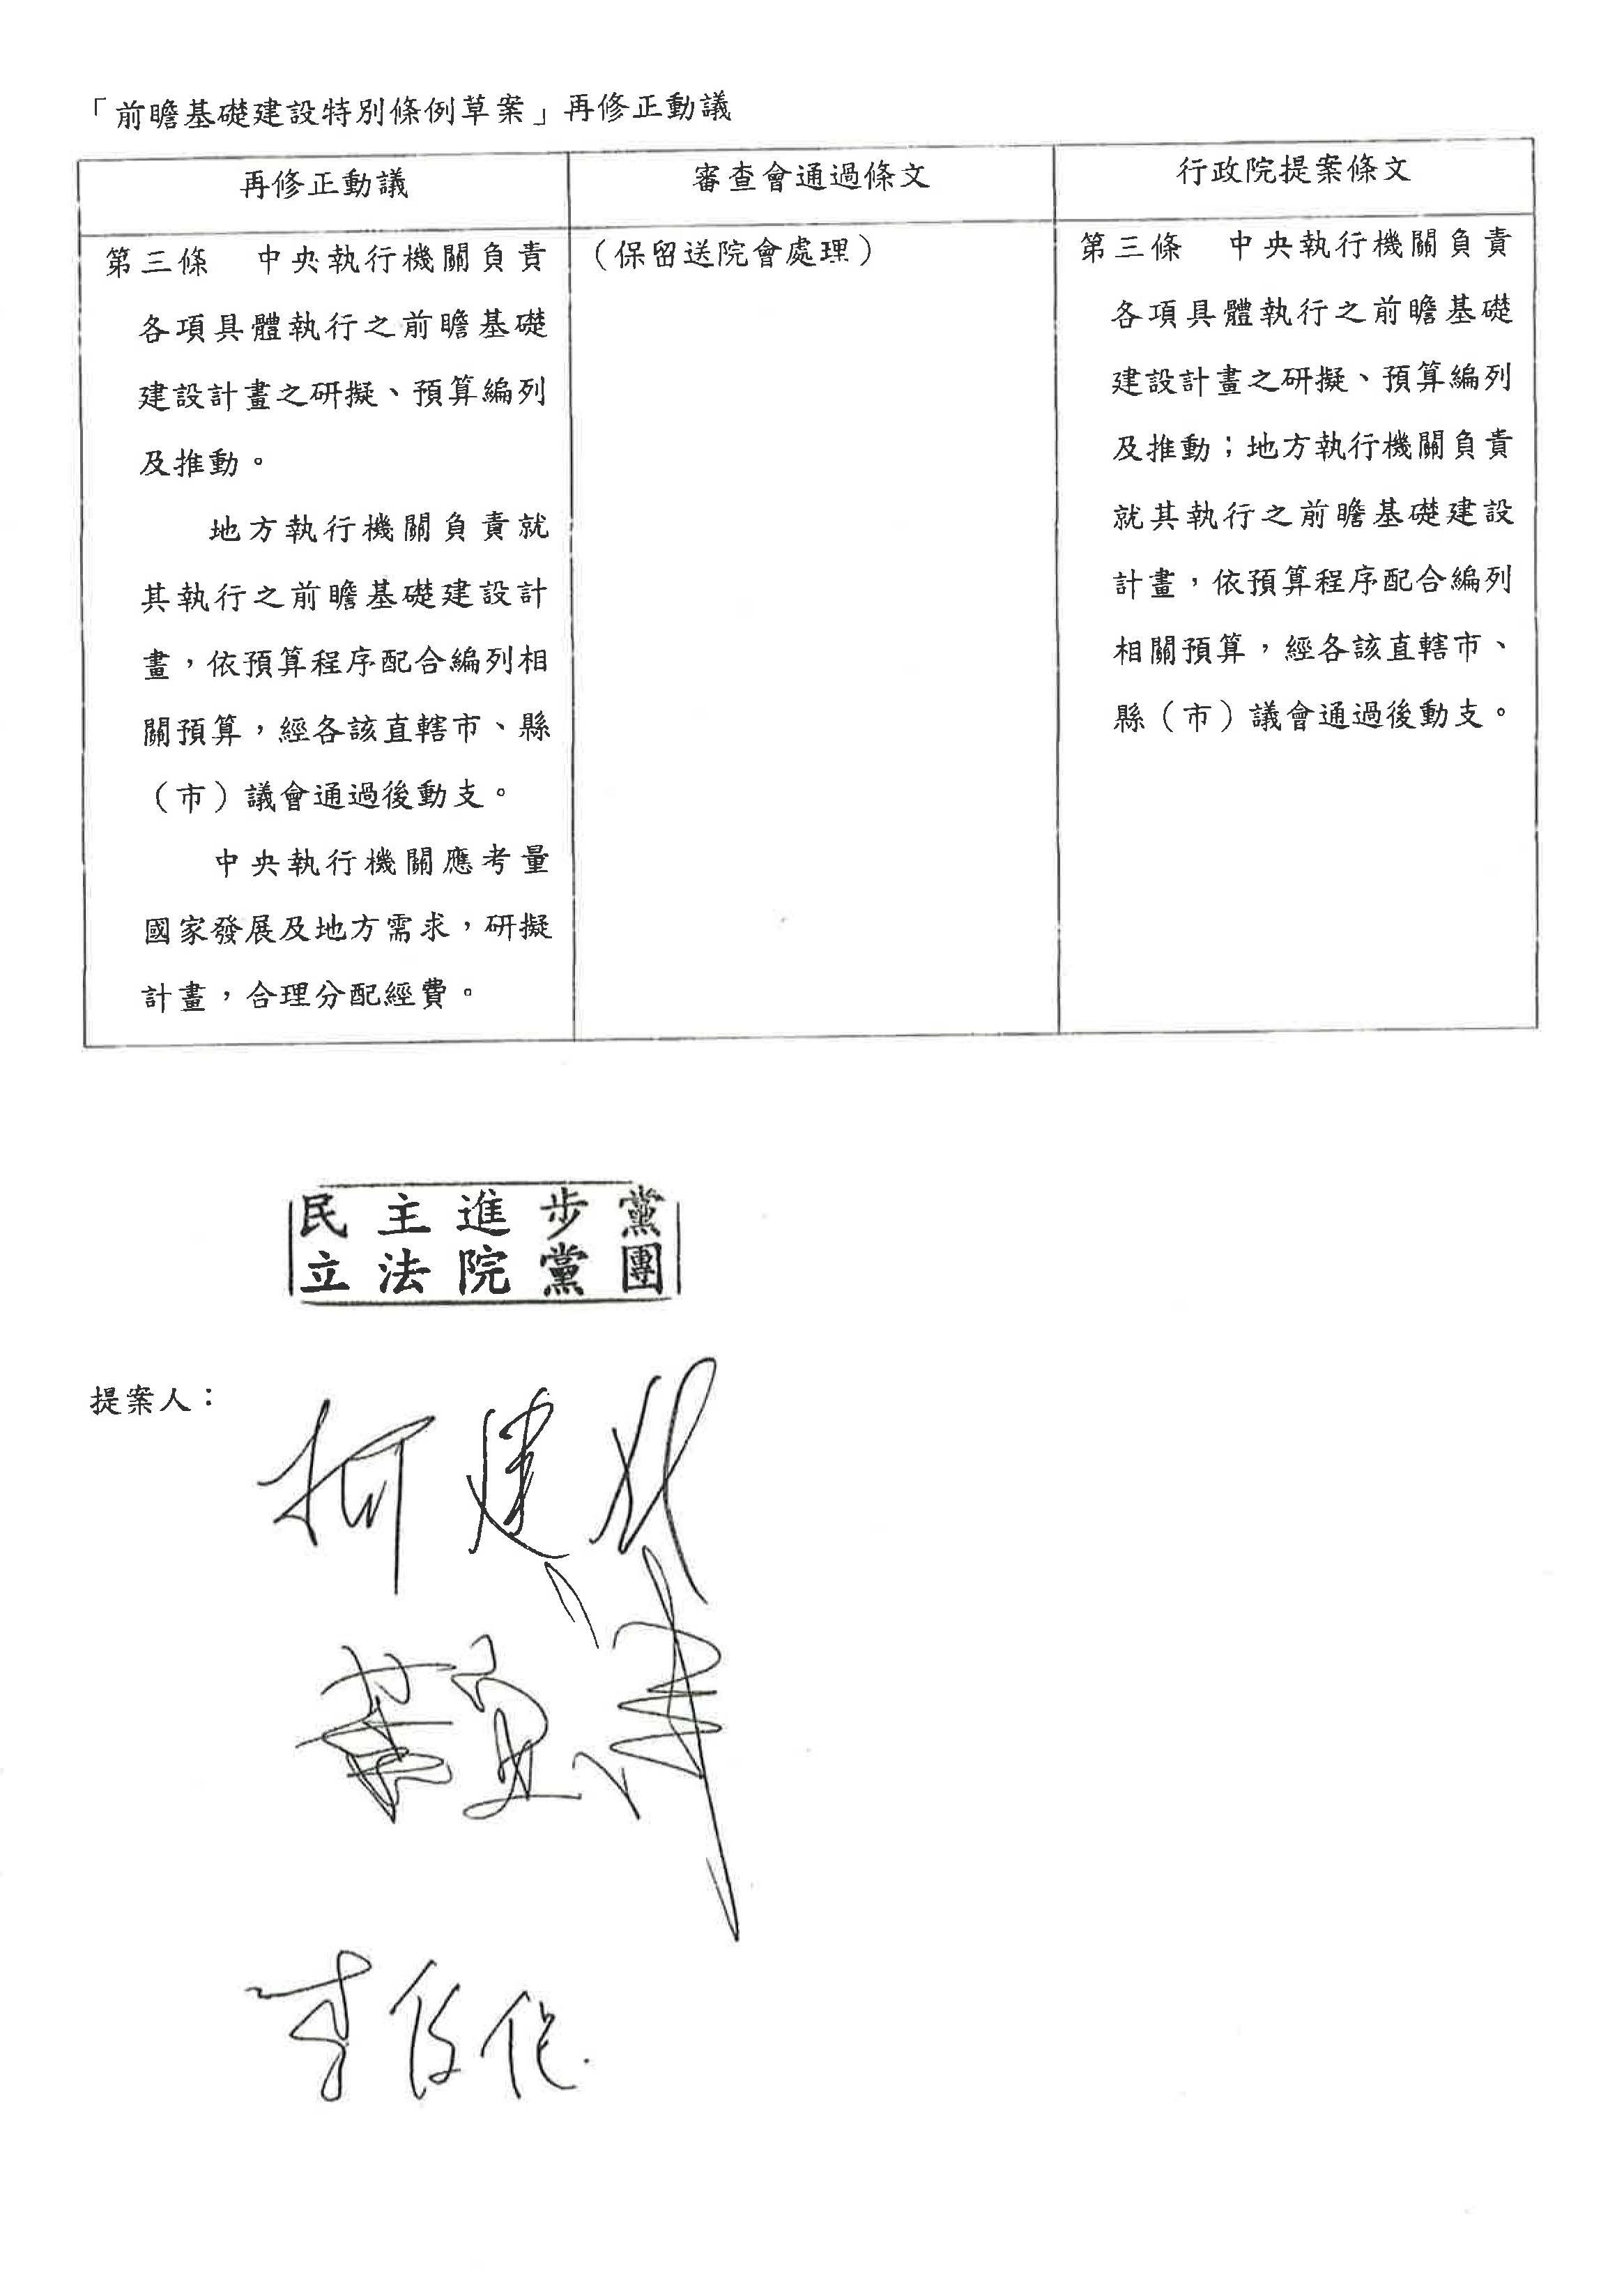 「前瞻基礎建設特別條例草案」再修正動議
再修正動議
審查會通過條文
行政院提案條文
第三條　中央執行機關負責
各項具體執行之前瞻基礎
建設計畫之研擬、預算編列
及推動。
地方執行機關負責就
其執行之前瞻基礎建設計
畫，依預算程序配合編列相
關預算，經各該直轄市、縣
（市）議會通過後動支。
中央執行機關應考量
國家發展及地方需求，研擬
計畫，合理分配經費。
（保留送院會處理）
第三條　中央執行機關負責
各項具體執行之前瞻基礎
建設計畫之研擬、預算編列
及推動；地方執行機關負責
就其執行之前瞻基礎建設
計畫，依預算程序配合編列
相關預算，經各該直轄市、
縣（市）議會通過後動支。
民主進步黨
立法院黨團
提案人：
柯建銘
李俊俋